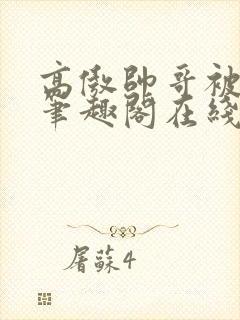 高傲帅哥被
笔趣阁在线
屠苏4